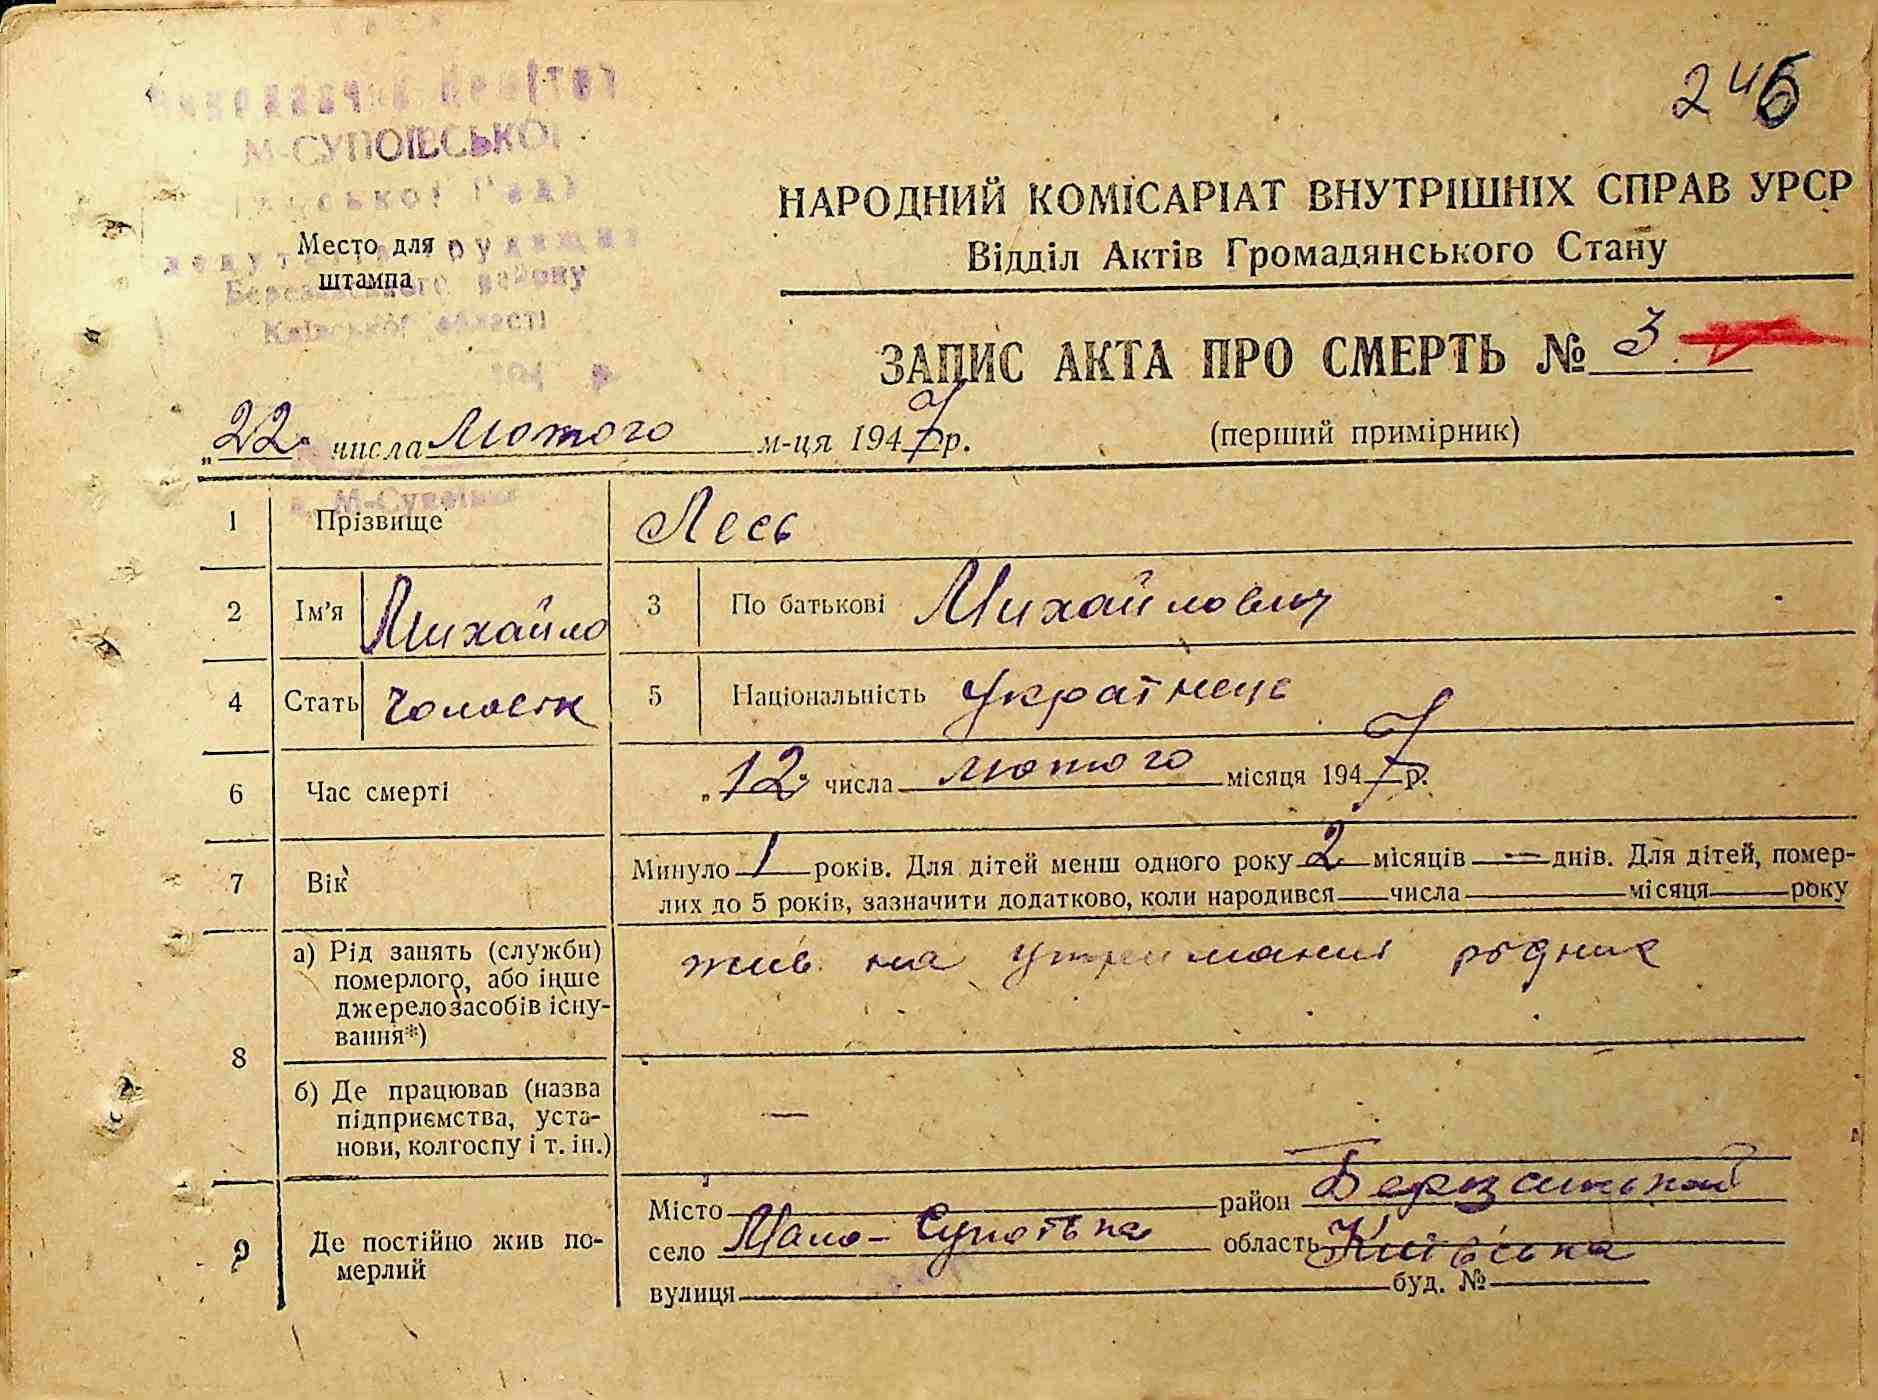 246
М-СУПОЇВСЬКОЇ
НАРОДНИЙ КОМІСАРІАТ ВНУТРІШНІХ СПРАВ УРСР
Відділ Актів Громадянського Стану
Место для
штампа
району
Київської області
194 р.
ЗАПИС АКТА ПРО СМЕРТЬ № 3.
„22" числа Лютого м-ця 1947 р.
(перший примірник)
1 Прізвище Лесь
2 Ім'я Михайло 3 По батькові Михайлович
4 Стать Чоловік 5 Національність Українець
6 Час смерті „12" числа лютого місяця 1947 р.
7 Вік Минуло 1 років. Для дітей менш одного року 2 місяців — днів. Для дітей, помер-
лих до 5 років, зазначити додатково, коли народився числа місяця року
8 а) Рід занять (служби)
померлого, або інше
джерело засобів існу-
вання*)
жив на утриманні рідних
б) Де працював (назва
підприємства, уста-
нови, колгоспу і т. ін.)
—
9 Де постійно жив по-
мерлий
Місто район Березанський
село Мало-Супоївка область Київська
вулиця буд. №